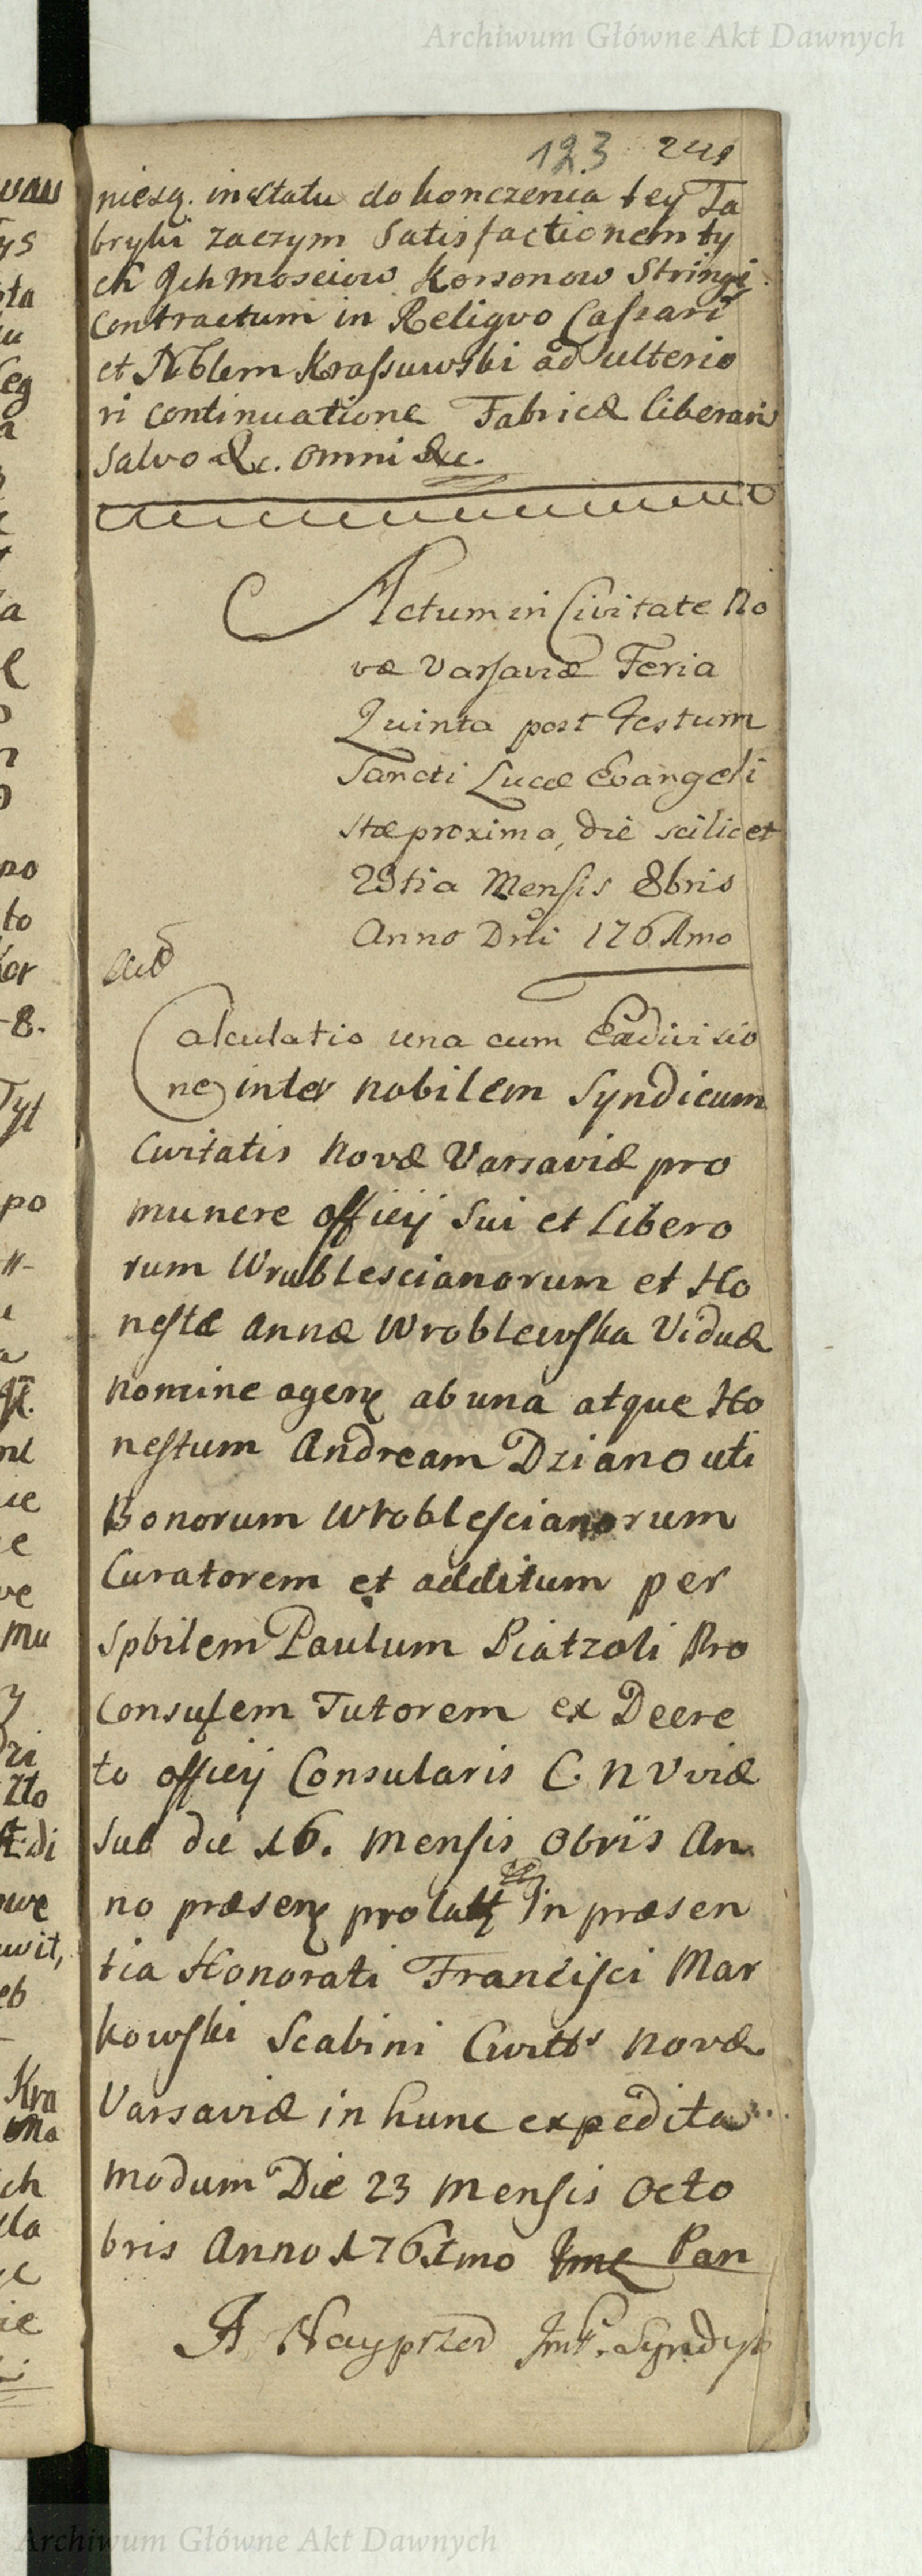 Archiwum Główne Akt Dawnych
123 241
niesą. in statu do konczenia tey Fa
bryki zaczym Satisfactionem ty
ch Jch Mosciow Korsonow Stringi
Contractum in Reliqvo Cassari
et Nblem Krassuwski ad ulterio
ri Continuatione Fabricæ liberari
Salvo &c. Omni &c.
Actum in Civitate No
væ Varsaviæ Feria
Quinta post Festum
Sancti Lucæ Evangeli
stæ proxima, die scilicet
23tia Mensis 8bris
Anno Dni 1761mo
Calculatio una cum Exdivisio
ne inter Nobilem Syndicum
Civitatis Novæ Varsaviæ pro
munere officij Sui et Libero
rum Wrublescianorum et Ho
nestæ Annæ Wroblewska Viduæ
Nomine agen ab una atque Ho
nestum Andream Dziano uti
Bonorum Wroblescianorum
Curatorem et additum per
Spbilem Paulum Piatzoli Pro
Consulem Tutorem ex Decre
to officij Consularis C. N Vviæ
Sub die 16. Mensis Obris An
no præsen prolat In præsen
tia Honorati Francisci Mar
kowski Scabini Civitts Novæ
Varsaviæ in hunc expedita
Modum Die 23 Mensis Octo
bris Anno 1761mo Jme Pan
A Nayprzod JmP. Syndyk
Archiwum Główne Akt Dawnych